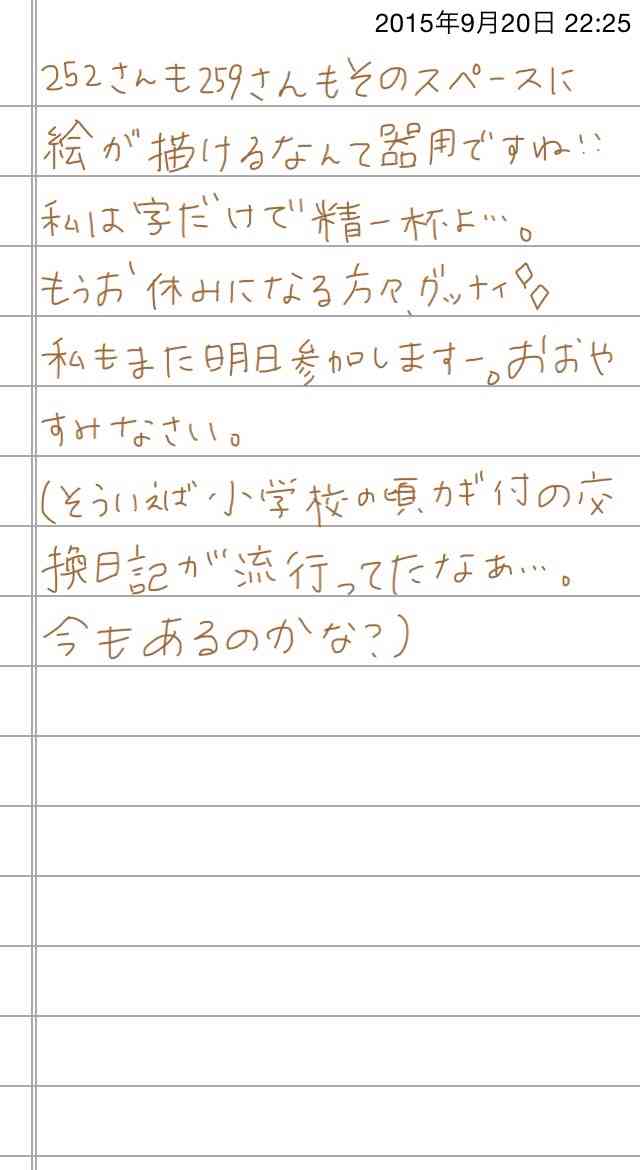 2015年9月20日 22:25
252さんも259さんもそのスペースに
絵が描けるなんて器用ですね!!
私は字だけで精一杯よ…。
もうお休みになる方々、グッナイ◇◇
私もまた明日参加しますー。おおや
すみなさい。
(そういえば、小学校の頃カギ付の交
換日記が流行ってたなぁ…。
今もあるのかな?)